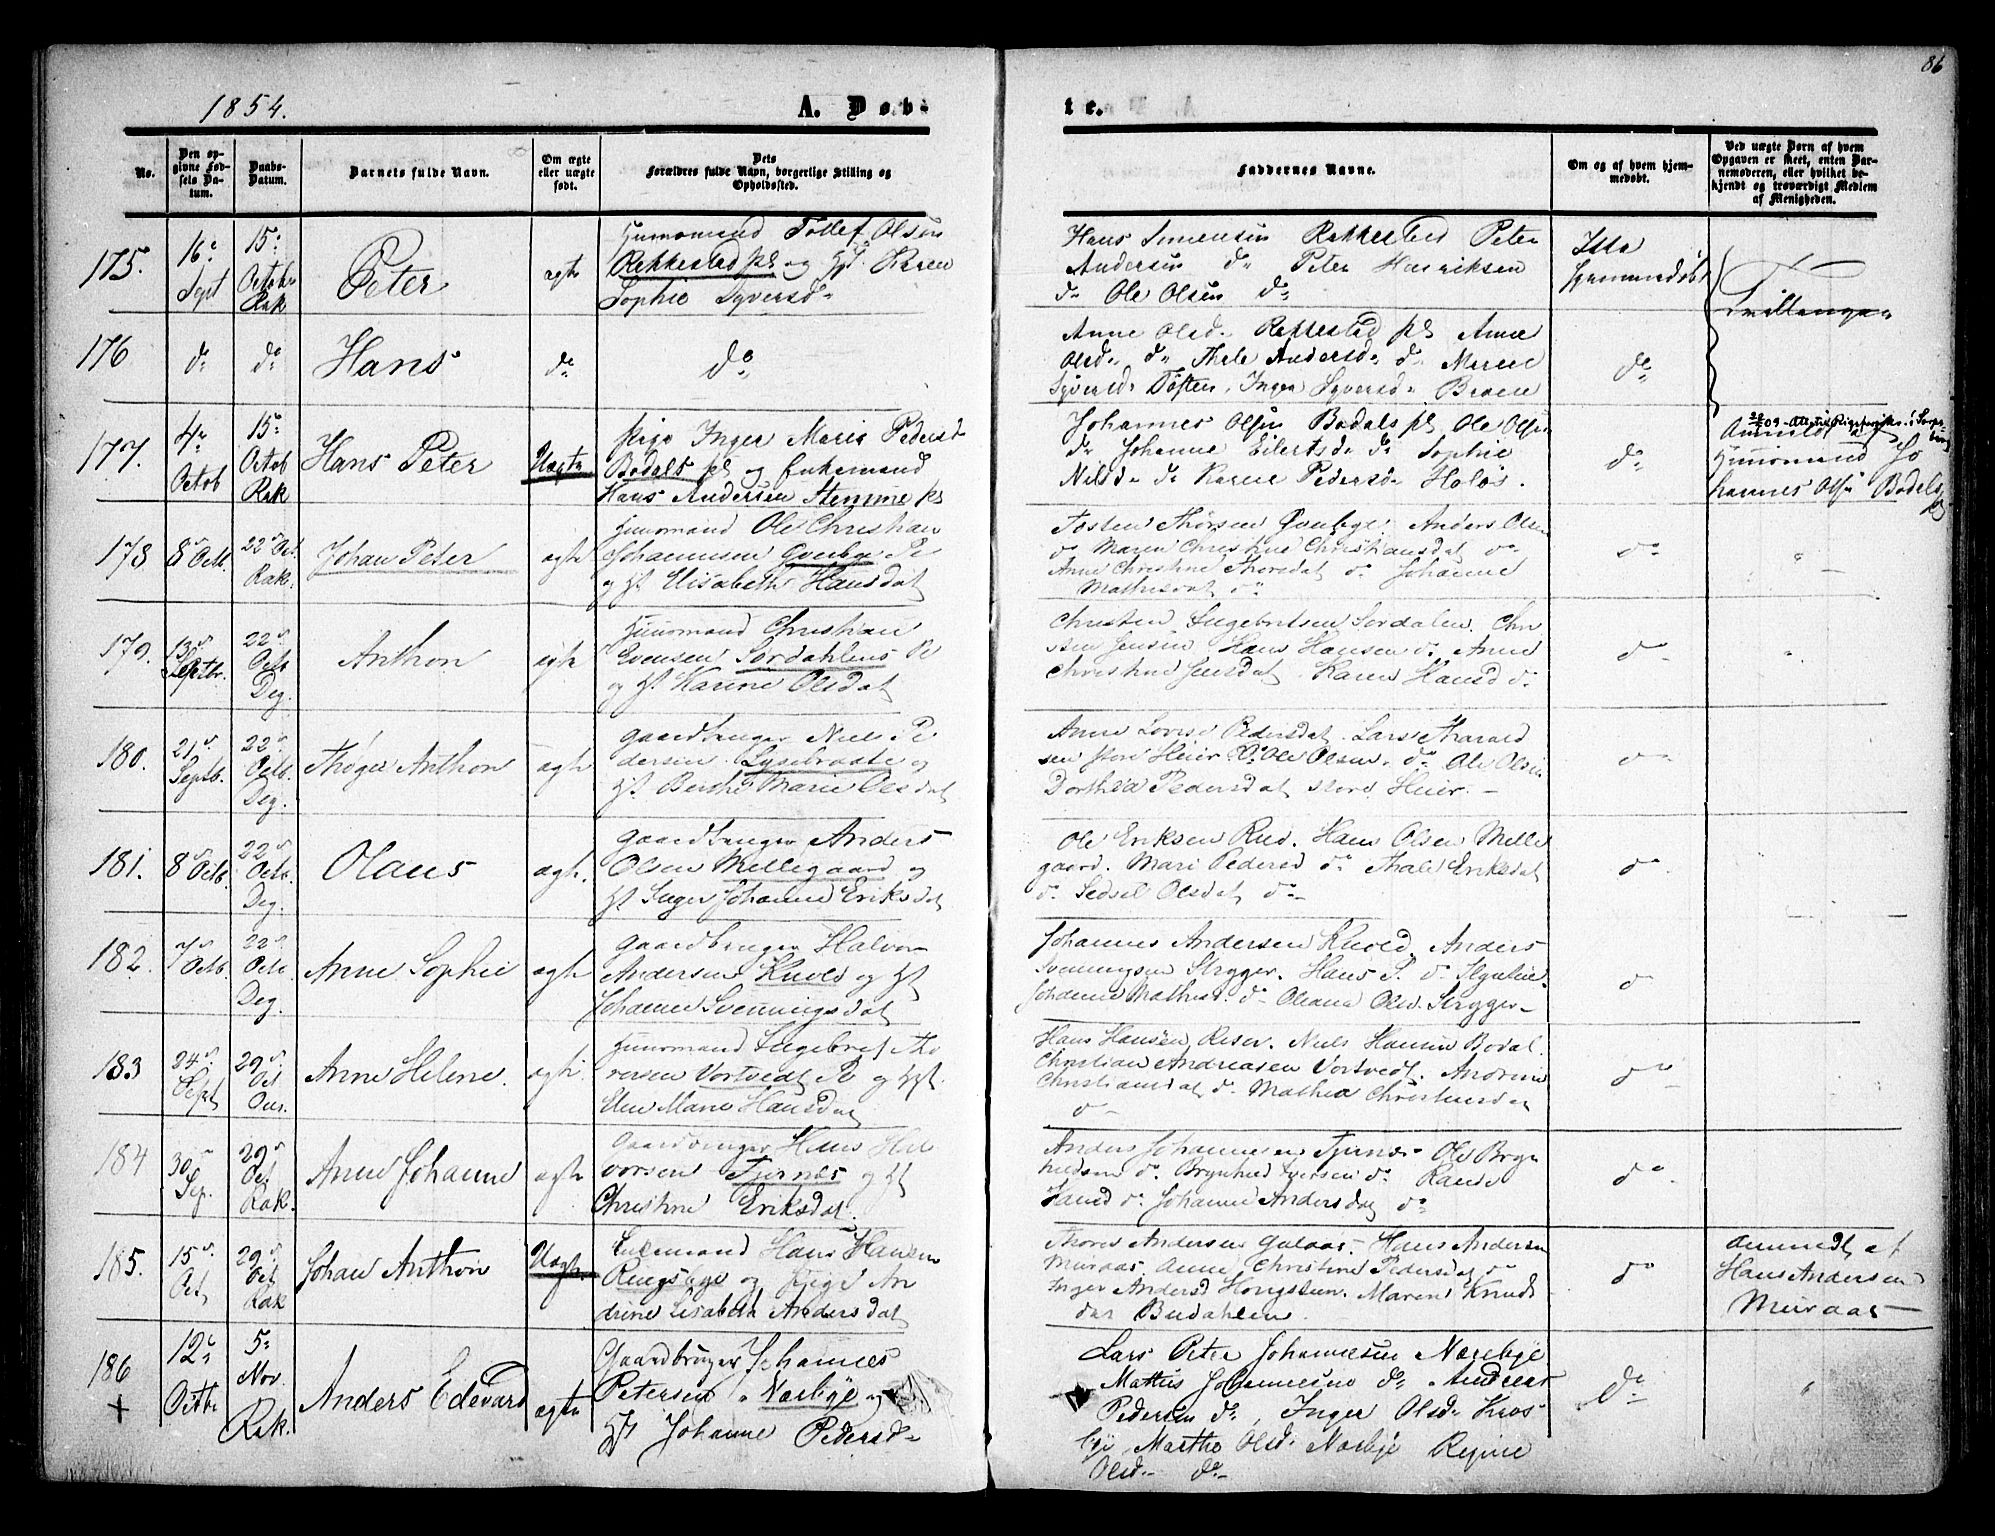 86
1854.
A. Døb-
te.
No.
Den op-
givne Fød-
sels Da-
tum.
Daabs-
Datum.
Barnets fulde Navn.
Om ægte
eller uægte
født.
Dets
Forældres fulde Navn, borgerlige Stilling og
Opholdssted.
Faddernes Navne.
Om og af hvem hjem-
medøbt.
Ved uægte Børn af hvem
Opgaven er skeet, enten Bar-
nemoderen, eller hvilket be-
kjendt og troværdigt Medlem
af Menigheden.
175.
16
Sept
15
Octobr
Rak
Peter
ægte
Huusmand Tollef Olsen
Rakkestad pl og Hst. Karen
Sophie Syversd
Hans Rakkestad Peter
Andersen do Peter Henriksen
do Ole Olsen do
Hjemmedøbt
Tvillinger
176
do
do
Hans
do
do
Anne Olsd. Rakkestad pl Anne
Olsd do Thale Andersd do Maren
Syversd Toften, Inger Syversd Braene
do
177.
4
Octob
15
Octob
Rak
Hans Peter
Uægte
Pige Inger Maria Pedersd
Bodals pl og Enkemand
Hans Andersen Stemme pl
Johannes Olsen Bodals pl Ole Olsen
do Johanne Eilertsd do Sophie
Nilsd do Karen Pedersd Holøs.
do
Anmeldt af
Huusmand Jo
hannes Olsen Bodals
pl
178
8 Octb.
22 Oct.
Rak.
Johan Peter
ægte
Huusmand Ole Christian
Johannesen Qvenbye Pl
og Hst Elisabeth Hansdat
Tosten Thorsen Qvenbye. Anders Olsen
do Maren Christine Christiansdat do
Anne Christine Thorsdat do Johanne
Mathisdat do
do
179.
13
Septbr.
22
Octb
Deg.
Anthon
ægte
Huusmand Christian
Evensen Sørdahlens Pl
og Hst Karine Olsdat
Christen Ingebritsen Sørdalen. Chri
sten Jensen Hans Hansen do Anne
Christine Jensdat. Karen Hansd do
do
180.
21
Septb.
22
Octb.
Deg.
Thøger Anthon
ægte
Gaardbruger Niels Pe
dersen Lysebraate og
Hst Berthe Marie Olsdat
Anne Lovise Pedersdat. Lars Harald
sen store Heier. Ole Olsen do Ole Olsen
Dorthea Pedersdat store Heier.
do
181.
8 Octb.
22
Octb.
Deg.
Olaus
ægte.
Gaardbruger Anders
Olsen Mellegaard og
Hst Inger Johanne Eriksdat
Ole Eriksen Rud. Hans Olsen Melle
gaard. Mari Pedersd do Thale Eriksdat
do Sedsel Olsdat do
do
182.
7
Octb.
22
Oct.
Deg.
Anne Sophie
ægte
Gaardbruger Halvor
Andersen Knold og Hst
Johanne Svenningsdat
Johannes Andersen Knold. Anders
Svenningsen Strygger. Hans P. do
Johanne Mathisd. do Oleana Olsd. Strygger
do
183
24
Sept
29
Oct
Ous.
Anne Helene.
ægte.
Huusmand Ingebret Tho
resen Vortvedt Pl og Hst.
Elen Marie Hansdat
Hans Hansen, Reser. Niels Hansen Bodal.
Christian Andreasen Vortvedt. Andrine
Christiansdat do Mathea Christensdat
do
do
184
30
Sep.
29
Oct
Rak.
Anne Johanne
ægte
Gaardbruger Hans Hal
vorsen Tjernæs og Hst
Christine Eriksdat.
Anders Johannesen Tjernæs Ole Bryn
hildsen do Brynhild Iversen do Rande
Hansd do Johanne Andersdat do
do
185.
15
Oct,
29
Oct
Rak
Johan Anthon
Uægte
Enkemand Hans Hansen
Ringsbye og Pige An
drine Elisabeth Andersdat
Thores Andersen Galaas. Hans Andersen
Muraas. Anne Christine Pedersdat do
Inger Andersd Hougstun. Maren Knuds
dat Budahlen.
do
Anmeldt af
Hans Andersen
Muraas
186
+
12
Octbr
5
Nov.
Rak.
Anders Edevard
ægte
Gaardbruger Johannes
Petersen Narbye og
Hst Johanne Pedersd
Lars Peter Johannesen Narebye
Mattis Johannesen do Andreas
Pedersen do, Inger Olsd Kros
bye, Marthe Olsd Narbye Regine
Olsd do
do